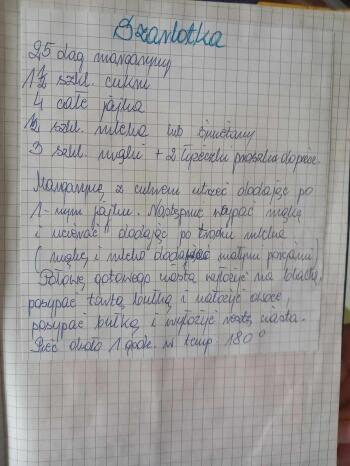 Szarlotka
25 dag margaryny
1 1/2 szkl. cukru
4 całe jajka
1/2 szkl. mleka lub śmietany
3 szkl. mąki + 2 łyżeczki proszku do piecz.
Margarynę z cukrem utrzeć dodając po
1-nym jajku. Następnie wsypać mąkę
i ucierać dodając po trochu mleka
(mąkę i mleko dodając małymi porcjami)
Połowę gotowego ciasta wyłożyć na blachę,
posypać tartą bułką i nałożyć owoce,
posypać bułką i wyłożyć resztę ciasta.
Piec około 1 godz. w temp 180°